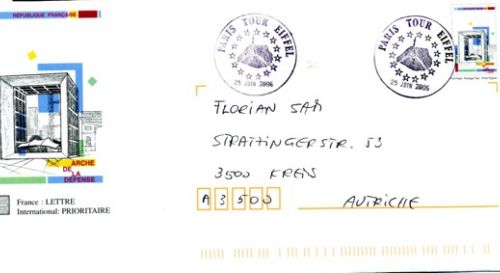 RÉPUBLIQUE FRANÇAISE
PARIS TOUR EIFFEL
25 JUIN 2006
PARIS TOUR EIFFEL
25 JUIN 2006
FLORIAN
STRATTINGERSTR. 53
3500 KREMS
A 3500
AUTRICHE
ARCHE
DE
LA
DÉFENSE
France : LETTRE
International: PRIORITAIRE